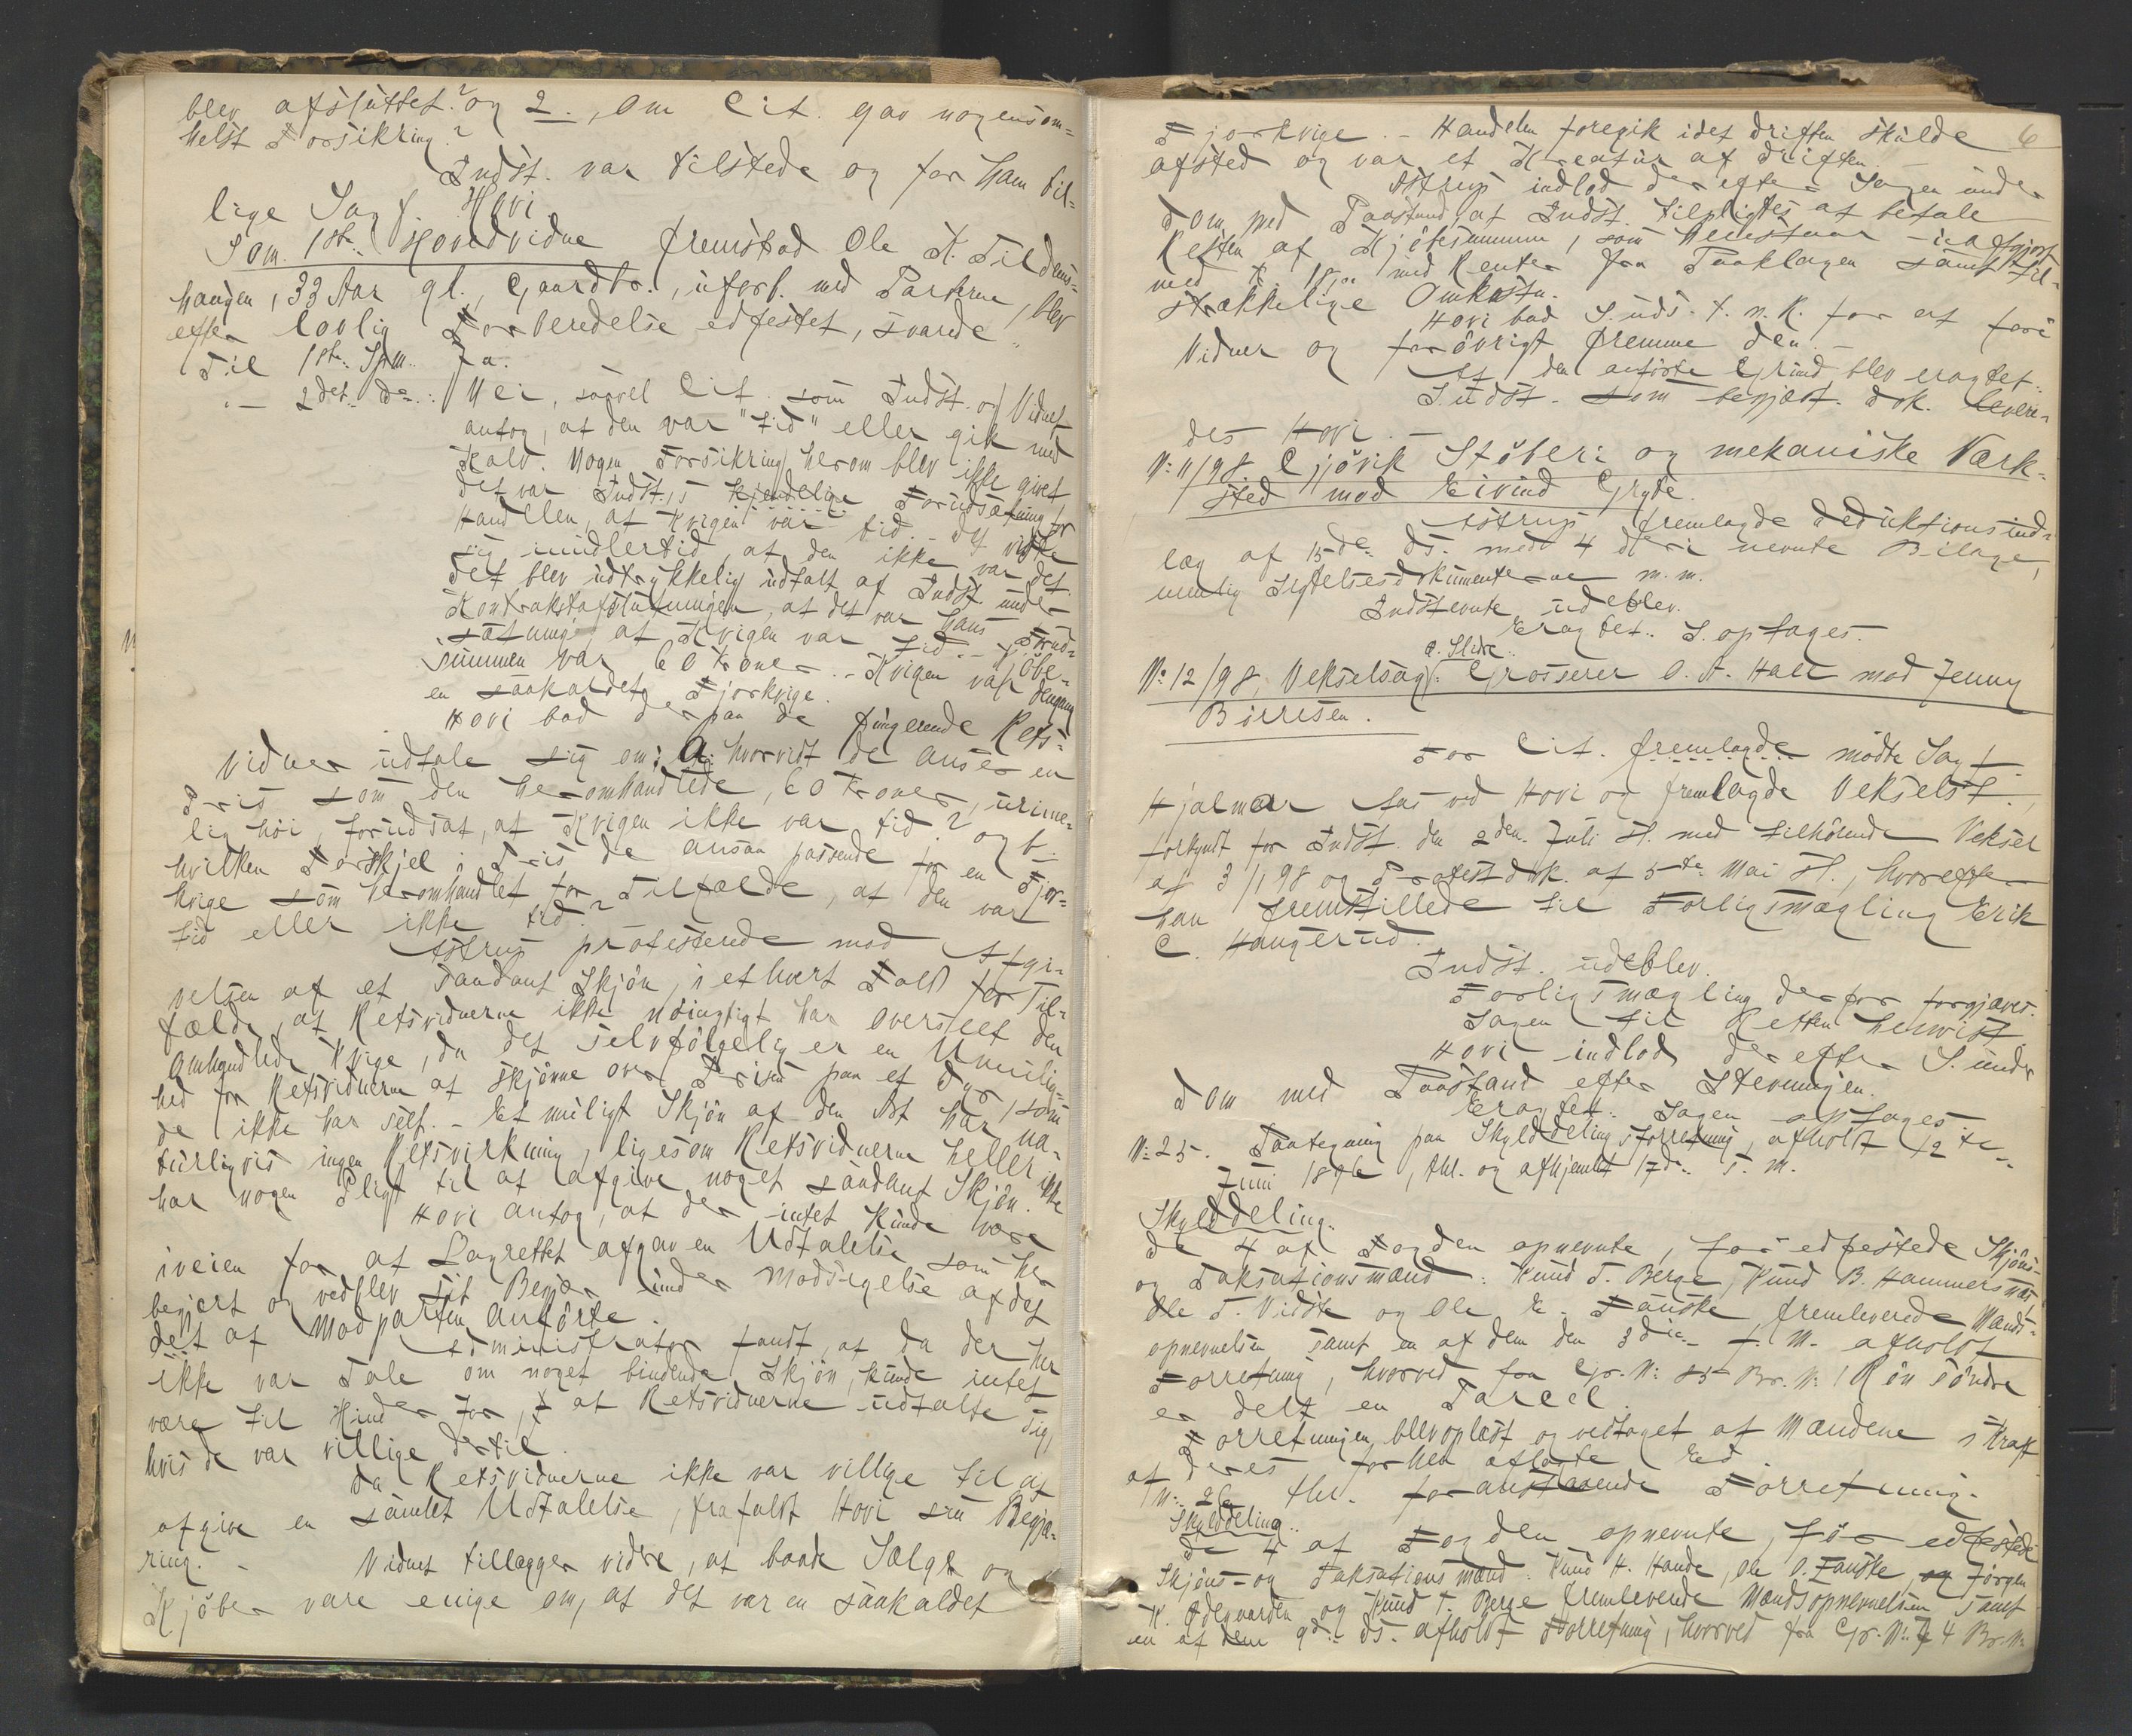 blev afsluttet? og 2., om Cit. gav nogensom=
helst Forsikring?
Indst. var tilstede og for ham til=
lige Sagf. Hovi.
Som 1ste Hovedvidne fremstod Ole K. Fildens=
haugen, 33 Aar gl., Gaardbr., uforb. med Parterne, blev
efter lovlig Forberedelse edfestet, svarede
Til 1ste Spm. Ja.
" — 2det do.: Nei, saavel Cit. som Indst. og Vidnet
antog, at den var "tid" eller gik med
Kalv. Nogen Forsikring herom blev ikke givet
det var Indst.s kjendelige Forudsætning for
Handelen, at Kvigen var tid. – Det viste
sig imidlertid, at den ikke var det.
Det blev udtrykkelig udtalt af Indst. under
Kontraktafslutningen, at det var hans Forud=
sætning, at Kvigen var tid. – Kjöbe=
summen var 60 Kroner. – Kvigen var dengang
en saakaldet Fjorkvige.
Hovi bad derpaa de fungerende Rets=
vidner udtale sig om: a. hvorvidt de anser en
Pris som den heromhandlede, 60 Kroner, urime=
lig höi, forudsat, at Kvigen ikke var tid? og b.
hvilken Forskjel i Pris de ansaa passende for en Fjor=
kvige som heromhandlet for Tilfælde, at den var
tid eller ikke tid?
Astrup protesterede mod Afgi=
velsen af et saadant Skjön, i ethvert Fald for Til=
fælde, at Retsvidnerne ikke nöiagtigt har overseet den
omhandlede Kvige, da det selvfölgelig er en Umulig=
hed for Retsvidnerne at skjönne over Prisen paa et Dyr, som
de ikke har seet. – Et muligt Skjön af den Art har na=
turligvis ingen Retsvirkning, ligesom Retsvidnerne heller ikke
har nogen Pligt til at afgive noget saadant Skjön.
Hovi antog, at der intet kunde være
iveien for at Lagrettet afgav en Udtalelse som her
begjært og vedblev sit Begjær under Modsigelse af det
det af Modparten Anförte.
Administrator fandt, at da der her
ikke var Tale om noget bindende Skjön, kunde intet
være til Hinder for, at Retsvidnerne udtalte sig,
hvis de var villige dertil.
Da Retsvidnerne ikke var villige til at
afgive en samlet Udtalelse, frafaldt Hovi sin Begjæ=
ring. –
Vidnet tillægger videre, at baade Sælger og
Kjöber vare enige om, at det var en saakaldet
6
Fjorkvige. – Handelen foregik idet Driften skulde
afsted og var et Kreatur af Driften.
Astrup indlod derefter Sagen under
Dom med Paastand, at Indst. tilpligtes at betale
Resten af Kjöbesummen, som henstaar uafgjort
med K. 18,00 med Renter fra Paaklagen samt til=
strækkelige Omkostn.
Hovi bad S. uds. t. n. R. for at före
Vidner og forövrigt fremme den. –
Af den anförte Grund blev eragtet:
S. udst. som begjært. Dok. levere=
des Hovi. –
No 11/98. Gjövik Stöberi og mekaniske Værk=
sted mod Eivind Gryde.
Astrup fremlagde Deduktionsind=
læg af 15de ds. med 4 deri nevnte Bilage,
nemlig Sigtelsesdokumenterne m. m.
Indstevnte udeblev.
Eragtet: S. optages.
No 12/98. Vekselsag: Grosserer O. A. Hall mod Jenny
Börresen.
For Cit. fremlagde mödte Sagf.
Hjalmar Aas ved Hovi og fremlagde Vekselst.,
forkyndt for Indst. den 2den Juli d. med tilhörende Veksel
af 3/1 98 og Protestdok. af 5te Mai d., hvorefter
han fremstillede til Forligsmægling Erik
C. Haugerud.
Indst. udeblev.
Forligsmægling derfor forgjæves.
Sagen til Retten henvist.
Hovi indlod derefter S. under
Dom med Paastand efter Stevningen.
Eragtet: Sagen optages.
No 25. Paategning paa Skylddelingsforretning, afholdt 12te
Juni 1896, thl. og afhjemlet 17de s. M.
Skylddeling.
De 4 af Fogden opnevnte, för edfestede Skjöns=
og Taksationsmænd: Knud T. Berge, Knud B. Hammersnæs,
Ole T. Vidste og Ole E. Fauske fremleverede Mands=
opnevnelsen samt en af dem den 3die f. M. afholdt
Forretning, hvorved fra Gr. No 85 Br. No 1 Rön söndre
er delt en Parcel.
Forretningen blev oplæst og vedtaget af Mændene i Kraft
af deres forhen aflagte Ed.
No 26 thl. foranstaaende Forretning.
Skylddeling.
De 4 af Fogden opnevnte, för edfestede
Skjöns- og Taksationsmænd: Knud H. Hande, Ole O. Fauske, og Jörgen
K. Ödegaarden og Knud T. Berge fremleverede Mandsopnevnelsen samt
en af dem 9de ds. afholdt Forretning, hvorved fra Gr. No 74 Br. No